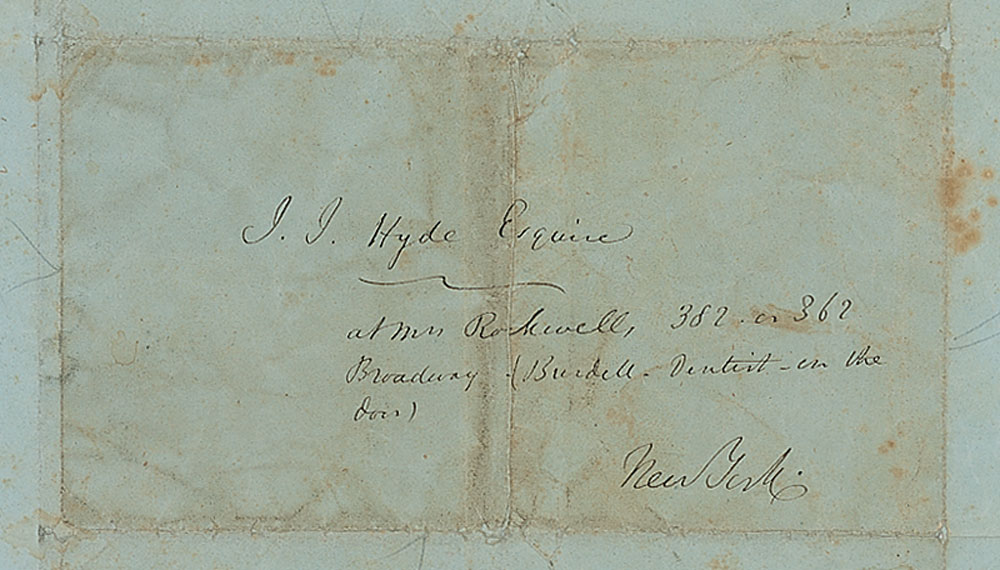 J. J. Hyde Esquire
at Mrs Rockwells 382 or 362
Broadway (Burdell - Dentist - on the
door)
New York.